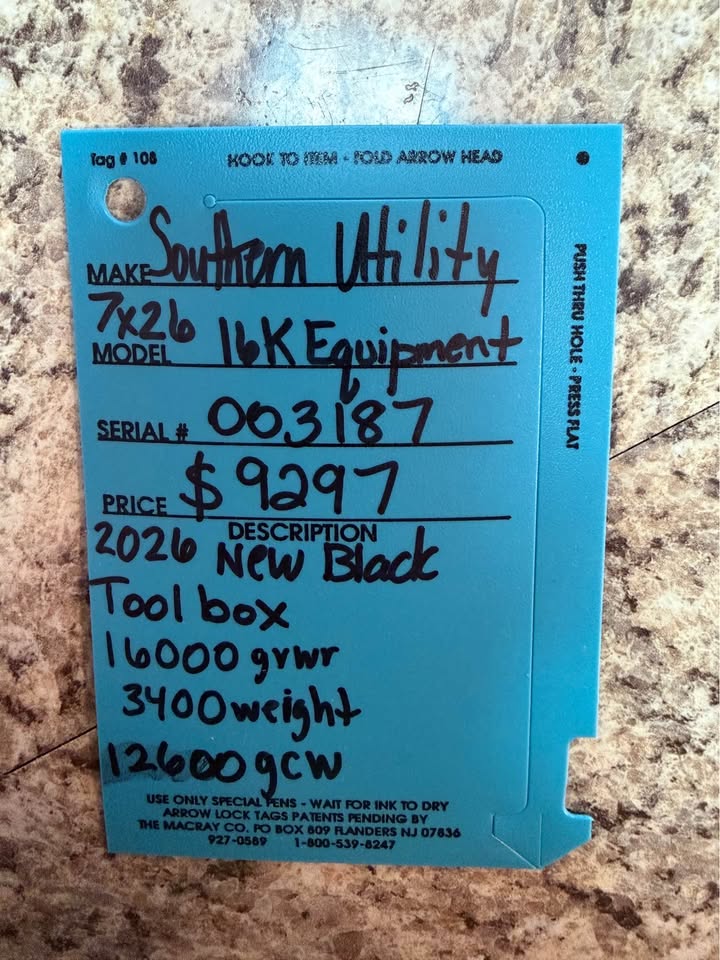 Tag # 108
HOOK TO ITEM - FOLD ARROW HEAD
MAKE Southern Utility
7x26
MODEL 16K Equipment
SERIAL # 003187
PRICE $9297
DESCRIPTION
2026 New Black
Tool box
16000 gvwr
3400 weight
12600 gcw
USE ONLY SPECIAL PENS - WAIT FOR INK TO DRY
ARROW LOCK TAGS PATENTS PENDING BY
THE MACRAY CO. PO BOX 809 FLANDERS NJ 07836
927-0589 1-800-539-8247
PUSH THRU HOLE - PRESS FLAT